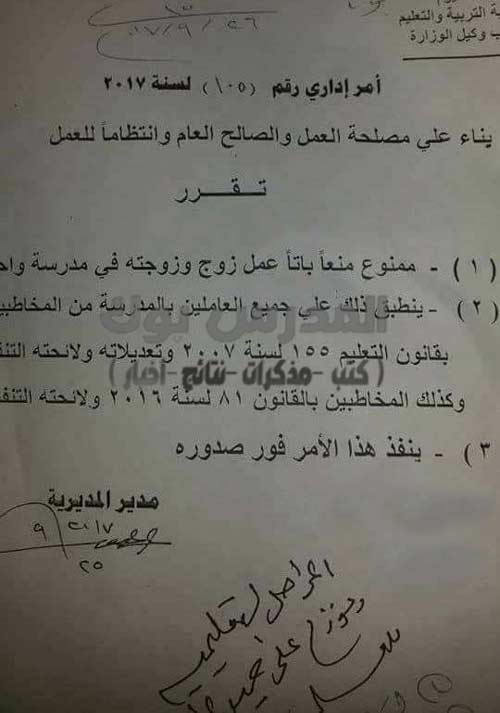 ة التربية والتعليم
ب وكيل الوزارة
٢٠١٧/٩/٢٦
أمر إداري رقم (١٠٥) لسنة ٢٠١٧
بناء علي مصلحة العمل والصالح العام وانتظاماً للعمل
تـقـــرر
(١) - ممنوع منعاً باتاً عمل زوج وزوجته في مدرسة واح
(٢) - ينطبق ذلك علي جميع العاملين بالمدرسة من المخاطبي
المدرس بوك
بقانون التعليم ١٥٥ لسنة ٢٠٠٧ وتعديلاته ولائحته التنف
(كتب -مذكرات -نتائج -اخبار)
وكذلك المخاطبين بالقانون ٨١ لسنة ٢٠١٦ ولائحته التنف
٣) - ينفذ هذا الأمر فور صدوره
مدير المديرية
٢٠١٧
٩
٢٥
المراحل التعليمية
على